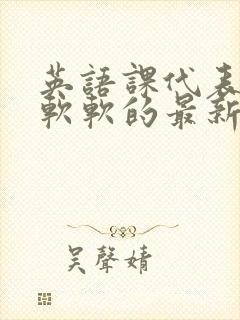 英語課代表
軟軟的最新
吳聲婧